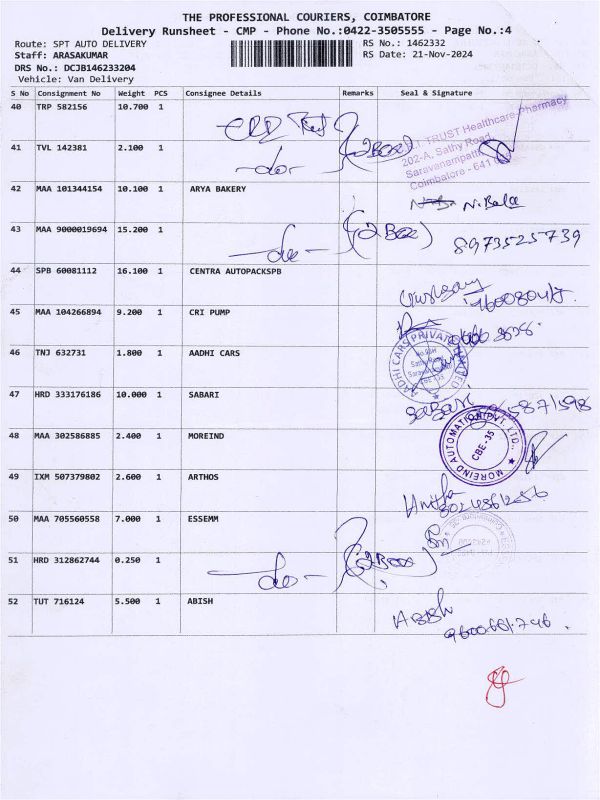 THE PROFESSIONAL COURIERS, COIMBATORE
Delivery Runsheet - CMP - Phone No.:0422-3505555 - Page No.:4
Route: SPT AUTO DELIVERY RS No.: 1462332
Staff: ARASAKUMAR RS Date: 21-Nov-2024
DRS No.: DCJB146233204
Vehicle: Van Delivery
S No Consignment No Weight PCS Consignee Details Remarks Seal & Signature
40 TRP 582156 10.700 1
TRUST Healthcare Pharmacy
202-A, Sathy Road
Saravanampatti
Coimbatore - 641
41 TVL 142381 2.100 1 -do- (2 Box)
42 MAA 101344154 10.100 1 ARYA BAKERY N. Bala
43 MAA 9000019694 15.200 1 -do- (2 Box) 8973525739
44 SPB 60081112 16.100 1 CENTRA AUTOPACKSPB
45 MAA 104266894 9.200 1 CRI PUMP
46 TNJ 632731 1.800 1 AADHI CARS
AADHI CARS PRIVATE
47 HRD 333176186 10.000 1 SABARI Sabari
48 MAA 302586885 2.400 1 MOREIND
MOREIND AUTOMATION PVT. LTD.,
CBE-35
49 IXM 507379802 2.600 1 ARTHOS
50 MAA 705560558 7.000 1 ESSEMM
51 HRD 312862744 0.250 1 -do- (2 Box)
52 TUT 716124 5.500 1 ABISH Abish
9600661746